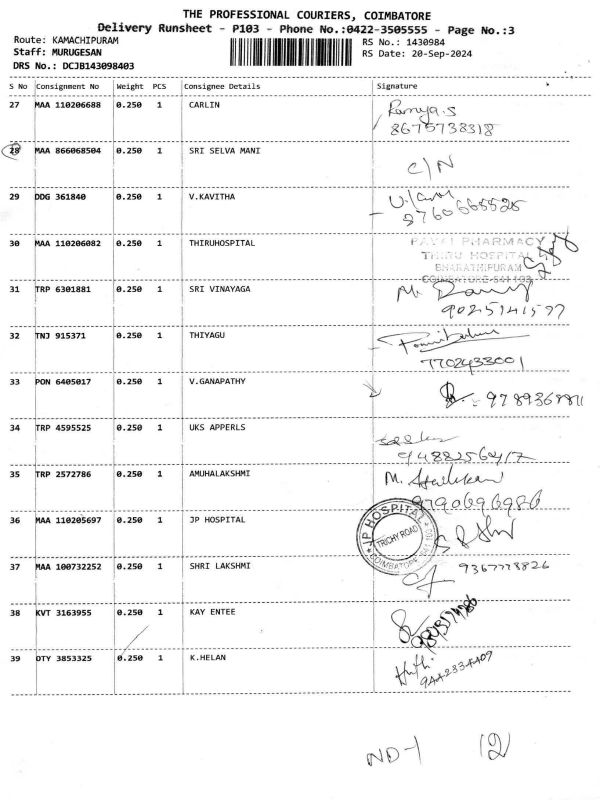 THE PROFESSIONAL COURIERS, COIMBATORE
Delivery Runsheet - P103 - Phone No.:0422-3505555 - Page No.:3
Route: KAMACHIPURAM
RS No.: 1430984
Staff: MURUGESAN
RS Date: 20-Sep-2024
DRS No.: DCJB143098403
S No Consignment No Weight PCS Consignee Details Signature
27 MAA 110206688 0.250 1 CARLIN Ramya.S
8675738318
28 MAA 866068504 0.250 1 SRI SELVA MANI
C/N
29 DDG 361840 0.250 1 V.KAVITHA
8760665525
30 MAA 110206082 0.250 1 THIRUHOSPITAL PHARMACY
THIRU HOSPITAL
BHARATHIPURAM
COIMBATORE-641 103
31 TRP 6301881 0.250 1 SRI VINAYAGA M.
9025141597
32 TNJ 915371 0.250 1 THIYAGU
7702433001
33 PON 6405017 0.250 1 V.GANAPATHY
34 TRP 4595525 0.250 1 UKS APPERLS
35 TRP 2572786 0.250 1 AMUHALAKSHMI M.
9790696986
36 MAA 110205697 0.250 1 JP HOSPITAL JP HOSPITAL
TRICHY ROAD
COIMBATORE
37 MAA 100732252 0.250 1 SHRI LAKSHMI 9367778826
38 KVT 3163955 0.250 1 KAY ENTEE
39 OTY 3853325 0.250 1 K.HELAN
ND-1 (2)